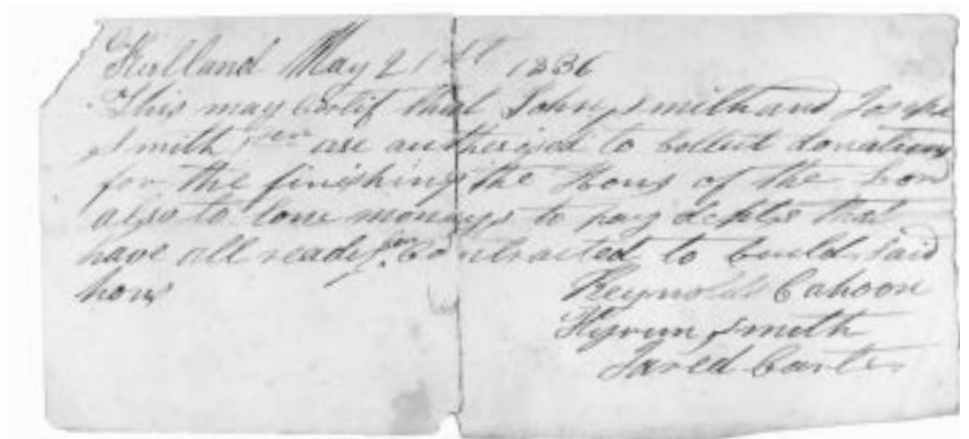 Kirtland May 21st 1836
This may certif that John Smith and Joseph
Smith Sen are authorised to collect donations
for the finishing the Hous of the Lord
also to lone moneys to pay debts that
have all ready been contracted to build said
hous
Reynolds Cahoon
Hyrum Smith
Jared Carter